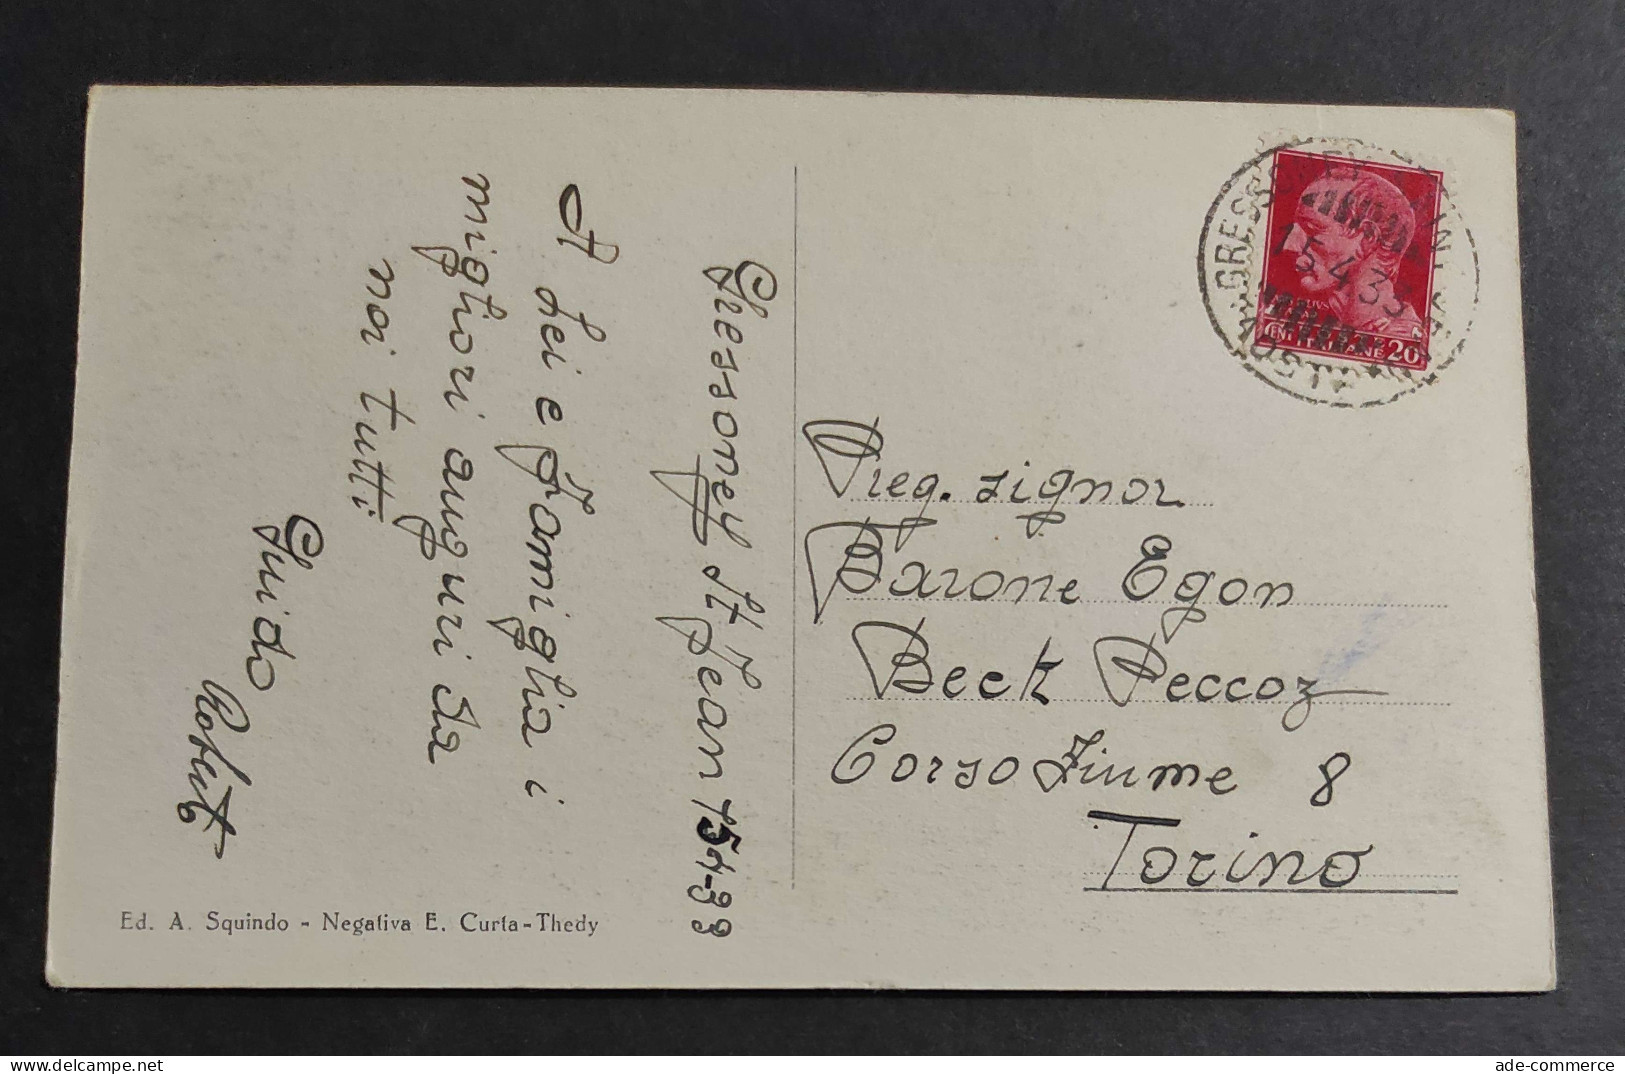 Gressoney St. Jean 15-4-33
A Lei e Famiglia i
migliori auguri da
noi tutti
Guido
Robert
Ed. A. Squindo - Negativa E. Curta-Thedy
GRESSONEY S. JEAN
15.4.33
AOSTA
CENT. ITALIANE 20
Preg. signor
Barone Egon
Beck Peccoz
Corso Fiume 8
Torino
delcampe.net
ade-commerce